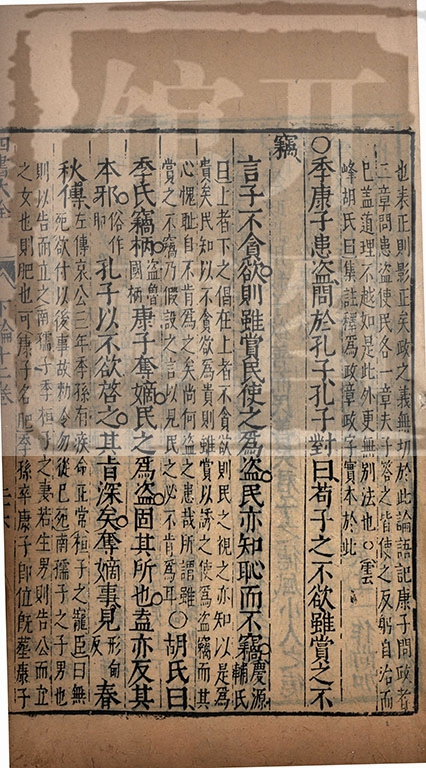 也表正則影正矣政之義無切於此論語記康子問政者
三章問患盜使民各一章夫子答之皆使之反躬自治而
巳蓋道理不越如是此外更無別法也○雲
峰胡氏曰集註釋為政章政字實本於此
○季康子患盜問於孔子孔子對曰苟子之不欲雖賞之不
竊
言子不貪欲則雖賞民使之為盜民亦知恥而不竊慶源輔氏
曰上者下之倡在上者不貪欲則民之視之亦知以是為
貴矣民知以不貪欲為貴則雖賞以誘之使為盜竊而其
心愧恥自不肯為之矣尚何盜之患哉所謂雖
賞之不竊乃假設之言以見民之必不肯為耳○胡氏曰
季氏竊柄盜魯國柄康子奪嫡民之為盜固其所也盍亦反其
本邪俗作耶孔子以不欲啓之其旨深矣奪嫡事見形甸反春
秋傳左傳哀公三年季孫有疾命正常桓子之寵臣曰無
死欲付以後事故勑令勿從巳死南孺子之子男也
則以告而立之南孺子季桓子之妻若生男則告公而立
之女也則肥也可康子名肥季孫卒康子即位既葬康子
四書大全 下論十二卷